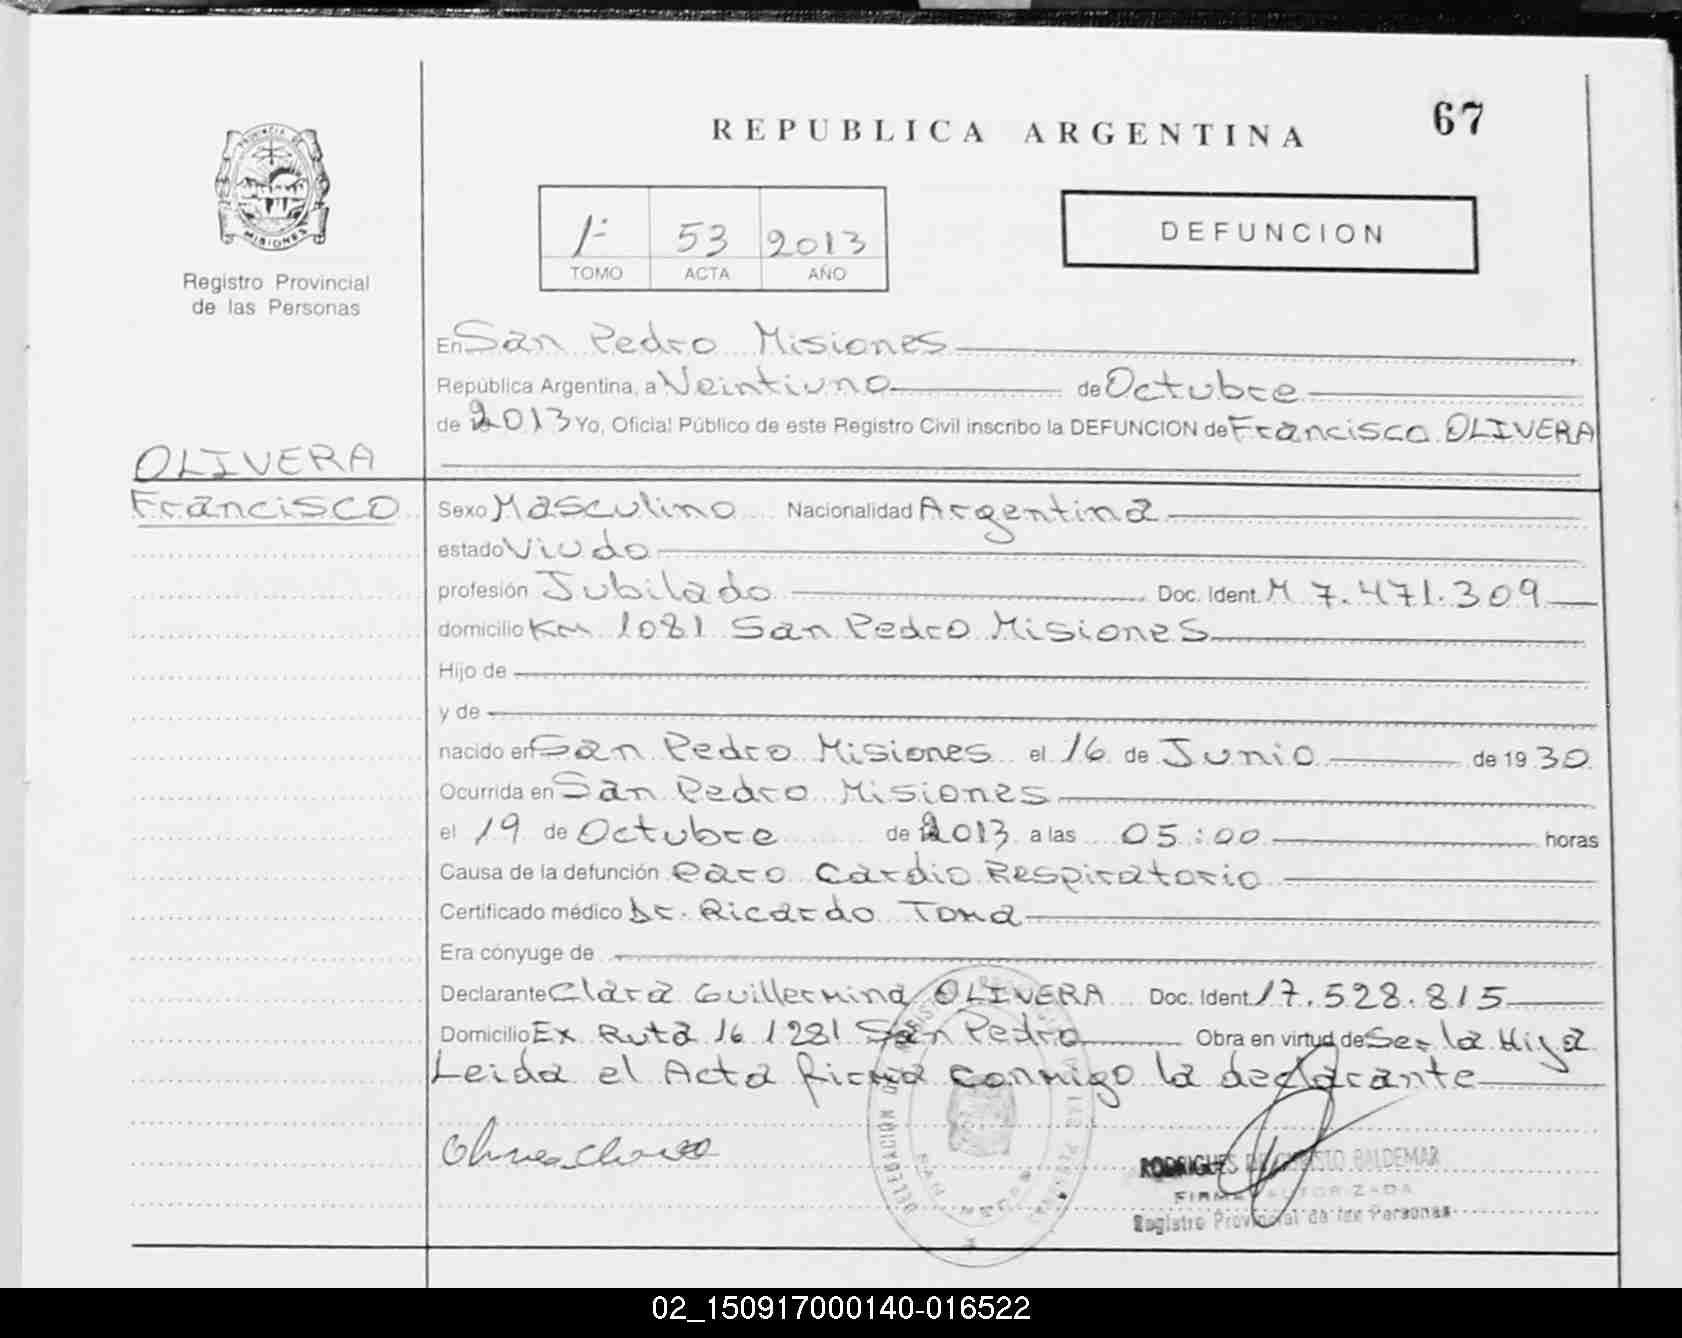 67
REPUBLICA ARGENTINA
PROVINCIA DE
MISIONES
Registro Provincial
de las Personas
1º 53 2013
TOMO ACTA AÑO
DEFUNCION
En San Pedro Misiones
República Argentina, a Veintiuno de Octubre
de 2013 Yo, Oficial Público de este Registro Civil inscribo la DEFUNCION de Francisco OLIVERA
OLIVERA
Francisco
Sexo Masculino Nacionalidad Argentina
estado Viudo
profesión Jubilado Doc. Ident. M 7.471.309
domicilio Km 1081 San Pedro Misiones
Hijo de
y de
nacido en San Pedro Misiones el 16 de Junio de 1930
Ocurrida en San Pedro Misiones
el 19 de Octubre de 2013 a las 05:00 horas
Causa de la defunción Paro Cardio Respiratorio
Certificado médico Dr. Ricardo Toma
Era cónyuge de
Declarante Clara Guillermina OLIVERA Doc. Ident. 17.528.815
Domicilio Ex Ruta 16 1281 San Pedro Obra en virtud de Ser la Hija
Leida el Acta firma conmigo la declarante
RODRIGUES DE CHRISTO BALDEMAR
FIRMA AUTORIZADA
Registro Provincial de las Personas
DELEGACION
SAN PEDRO
02_150917000140-016522